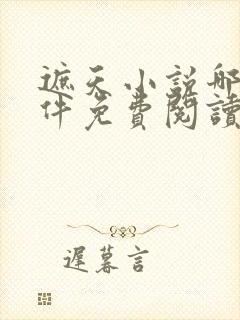 遮天小説哪
件免費閱讀
遲暮言